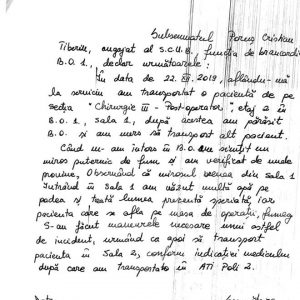 Subsemnatul Porug Cristian
Tiberiu, angajat al S.C.U.B., funcția de brancardier
B.O.1, declar următoarele:
În data de 22. XII. 2019, aflându-mă
la serviciu am transportat o pacientă de pe
secția "Chirurgie III - Post-operator", etaj 2 în
B.O.1, sala 1, după acestea am părăsit
B.O. și am mers să transport alt pacient.
Când m-am întors în B.O. am simțit un
miros puternic de fum și am verificat de unde
provine, Observând că mirosul venea din Sala 1
Intrând în Sala 1 am văzut multă apă pe
podea și toată lumea prezentă speriată, iar
pacienta care se afla pe masa de operații, fumega
S-au făcut manevrele necesare unui astfel
de incident, urmând ca apoi să transport
pacienta în Sala 2, conform indicației medicului
după care am transportat-o în ATI Poli 2.